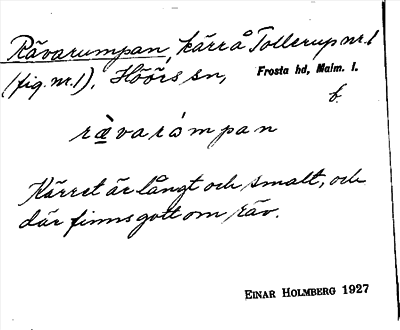 Rävarumpan, kärr å Tollerup nr. 1
(fig. nr. 1), Höörs sn, Frosta hd, Malm. l.
f.
rävarómpan
Kärret är långt och smalt, och
där finns gott om räv.
EINAR HOLMBERG 1927